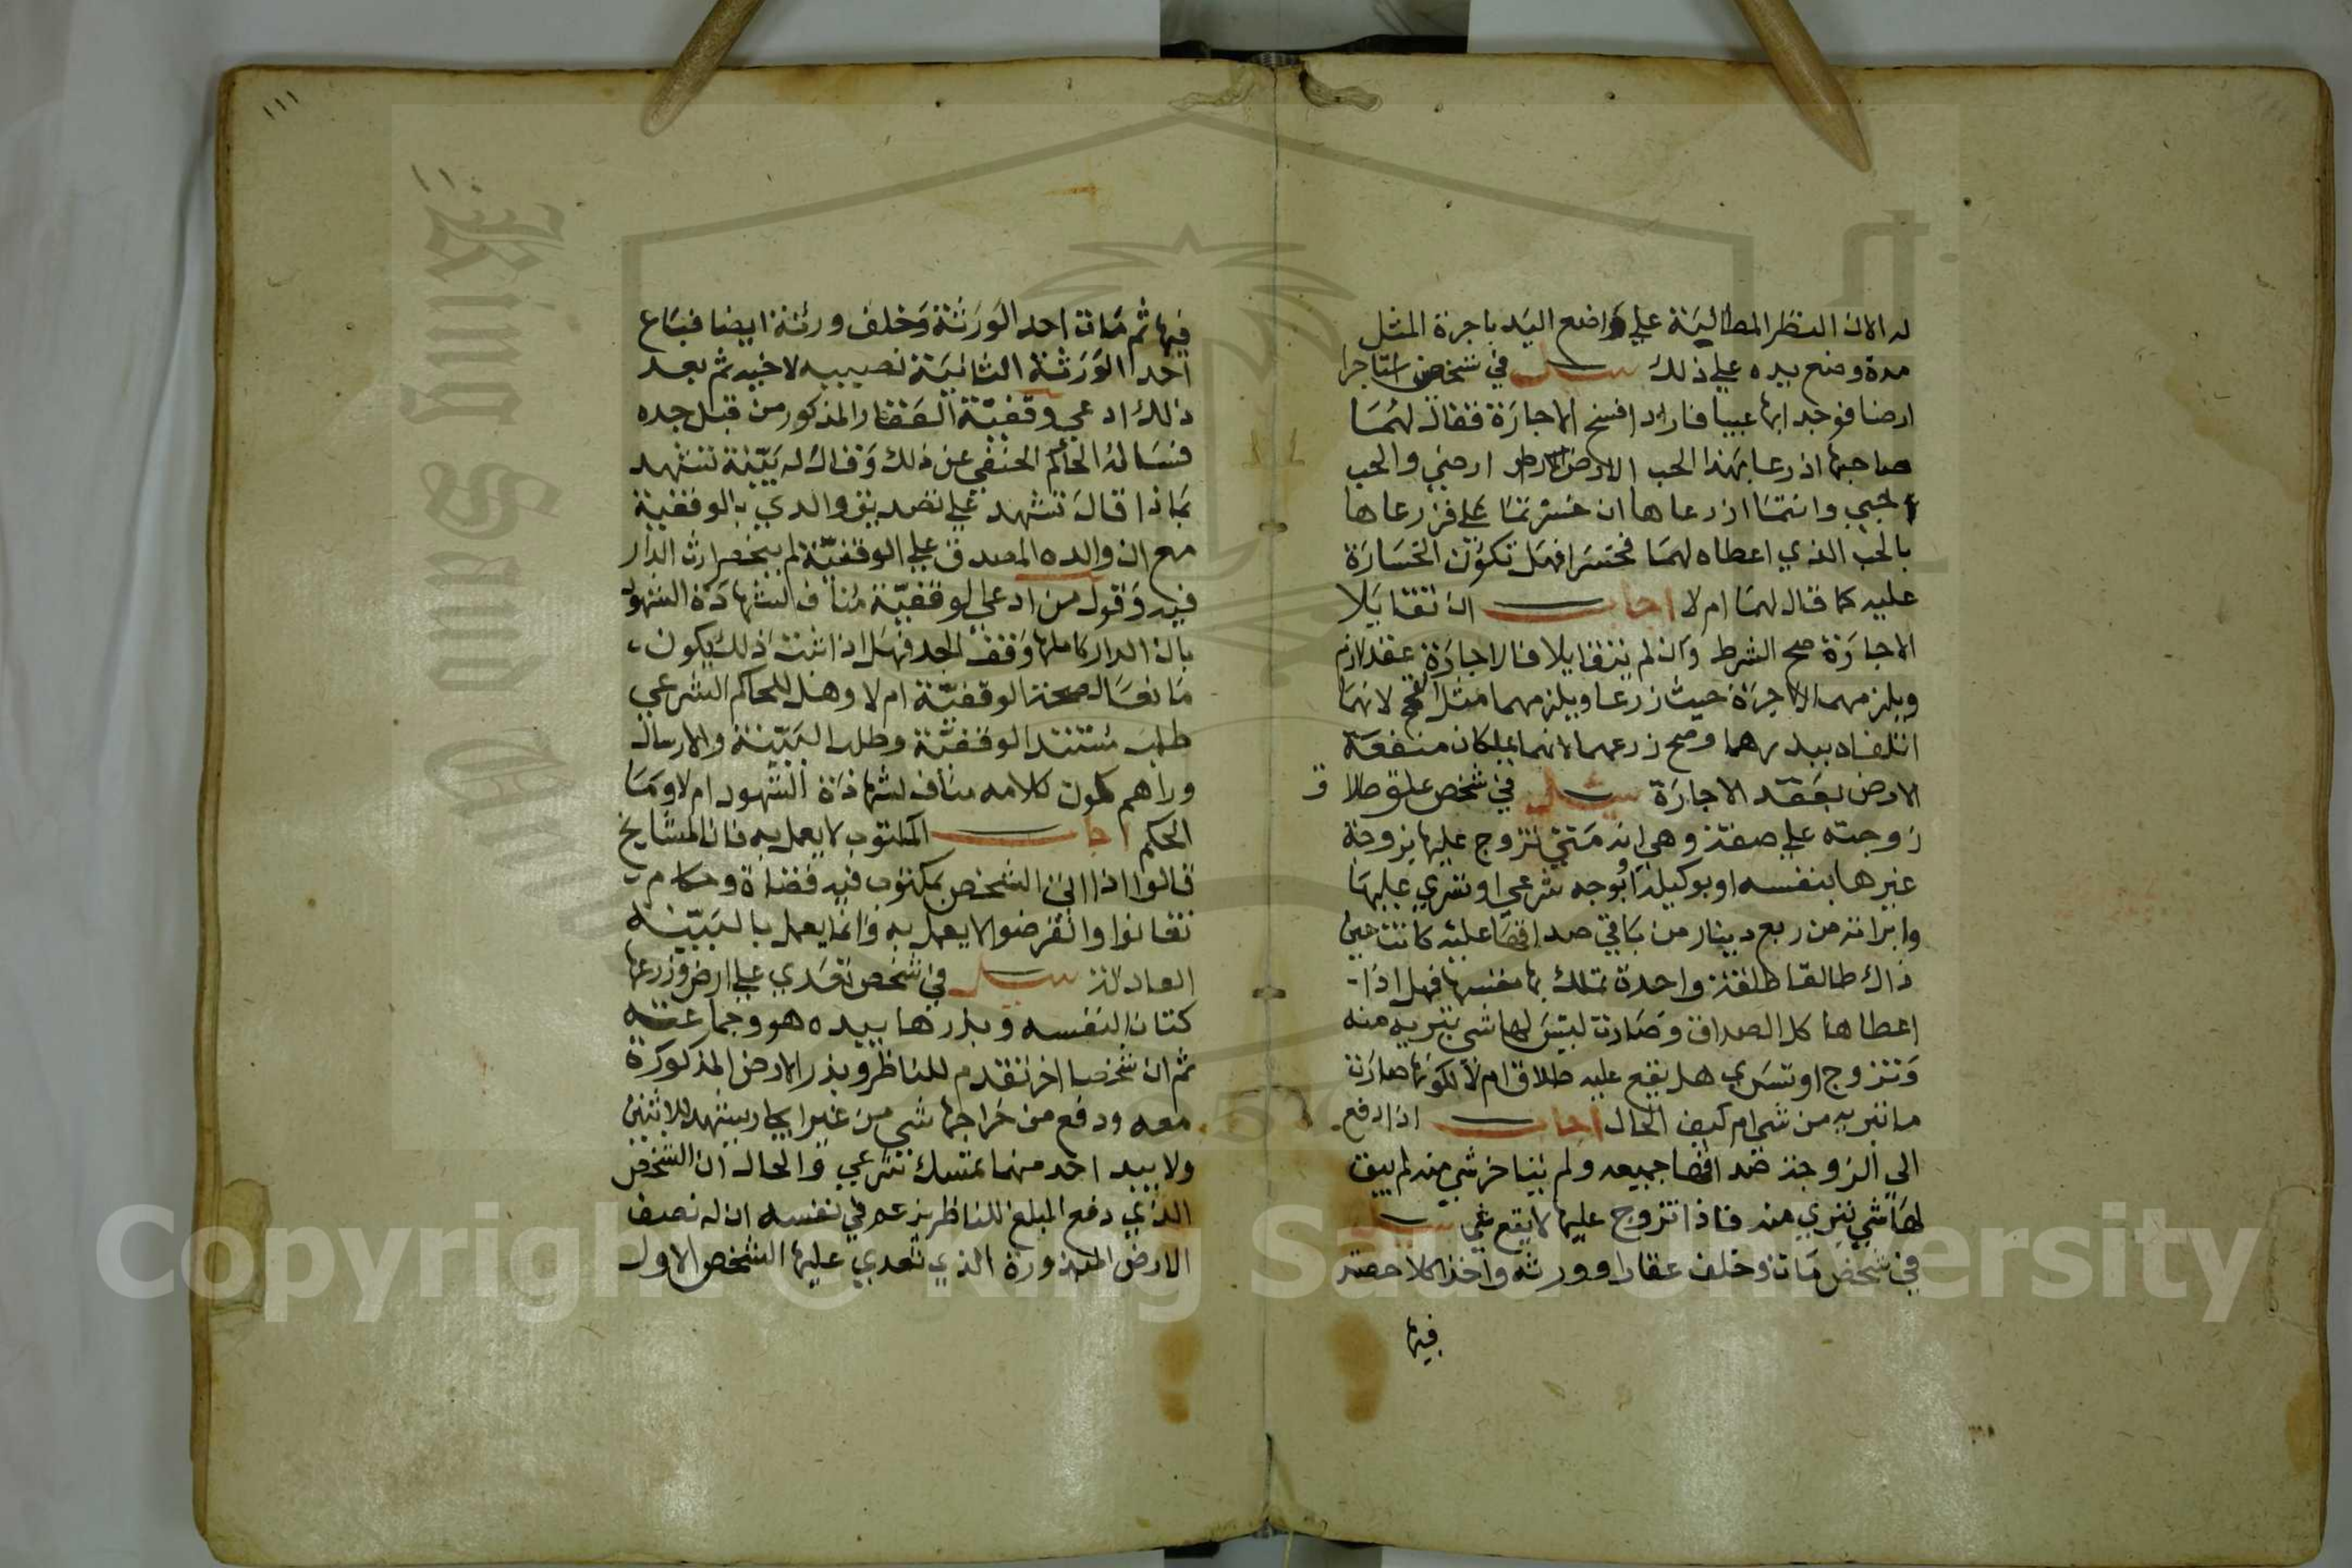 له الان النظر المطالبة علي واضع اليد باجرة المثل
مدة وضع يده علي ذلك سئل في شخص استاجرا
ارضا فوجد ابها عيبا فاراد افسخ الاجارة فقال لهما
صاحبها ازرعا بهذا الحب الارض ارضي والحب
حبي وانتما ازرعاها ان خسرتما علي فزرعاها
بالحب الذي اعطاه لهما فخسرا فهل تكون الخسارة
عليه كما قال لهما ام لا اجاب ان تقايلا
الاجارة صح الشرط وان لم يتقايلا فالاجارة عقد لازم
ويلزمهما الاجرة حيث زرعا ويلزمهما مثل القمح لانهما
اتلفاه ببذرهما وصح زرعهما لانهما يملكان منفعة
الارض بعقد الاجارة سئل في شخص علق طلاق
زوجته علي صفة وهي انه متي تزوج عليها بزوجة
غيرها بنفسه او بوكيله او بوجه شرعي او تسري عليها
وابراته من ربع دينار من باقي صداقها عليه كانت حين
ذاك طالقا طلقة واحدة تملك بها نفسها فهل اذا
اعطاها كل الصداق وصارت ليس لها شي تبريه منه
وتزوج او تسري هل يقع عليه طلاق ام لا لكونها صارت
ما تبريه من شي ام كيف الحال اجاب اذا دفع
الي الزوجة صداقها جميعه ولم يتاخر شي منه لم يبق
لها شي تبري منه فاذا تزوج عليها لا يقع شي سئل
في شخص مات وخلف عقارا وورثه واخذ كلا حصته
فيها
١١١
١١٠
فيها ثم مات احد الورثة وخلف ورثة ايضا فباع
احد الورثة الثانية نصيبه لاخيه ثم بعد
ذلك ادعي وقفية العقار المذكور من قبل جده
فساله الحاكم الحنفي عن ذلك وقال له بينة تشهد
بماذا قال تشهد علي تصديق والدي بالوقفية
مع ان والده المصدق علي الوقفية لم ينحصر ارث الدار
فيه وقول من ادعي الوقفية مناف لشهادة الشهود
بان الدار كاملها وقف الجد فهل اذا ثبت ذلك يكون
مانعا لصحة الوقفية ام لا وهل للحاكم الشرعي
طلب مستند الوقفية وطلب البينة والارسال
وراهم كون كلامه مناف لشهادة الشهود ام لا وما
الحكم اجاب المكتوب لا يعمل به فان المشايخ
قالوا اذا اتي الشخص بمكتوب فيه قضاة وحكام
تفانوا وانقرضوا لا يعمل به وانما يعمل بالبينة
العادلة سئل في شخص تعدي علي ارض وزرعها
كتان لنفسه وبذرها بيده هو وجماعته
ثم ان شخصا اخر تقدم للناظر وبذر الارض المذكورة
معه ودفع من خراجها شي من غير ايجار يشهد للاثنين
ولا بيد احد منهما تمسك شرعي والحال ان الشخص
الذي دفع المبلغ للناظر يزعم في نفسه ان له نصف
الارض المبذورة الذي تعدي عليها الشخص الاول
Copyright © King Saud University
King Saud University